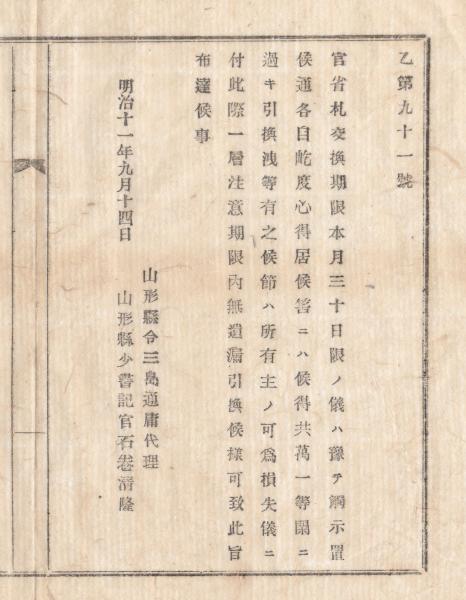 乙第九十一號
官省札交換期限本月三十日限ノ儀ハ豫テ觸示置
候通各自屹度心得居候筈ニハ候得共萬一等閑ニ
過キ引換洩等有之候節ハ所有主ノ可爲損失儀ニ
付此際一層注意期限內無遺漏引換候樣可致此旨
布達候事
明治十一年九月十四日
山形縣令三島通庸代理
山形縣少書記官石卷清隆